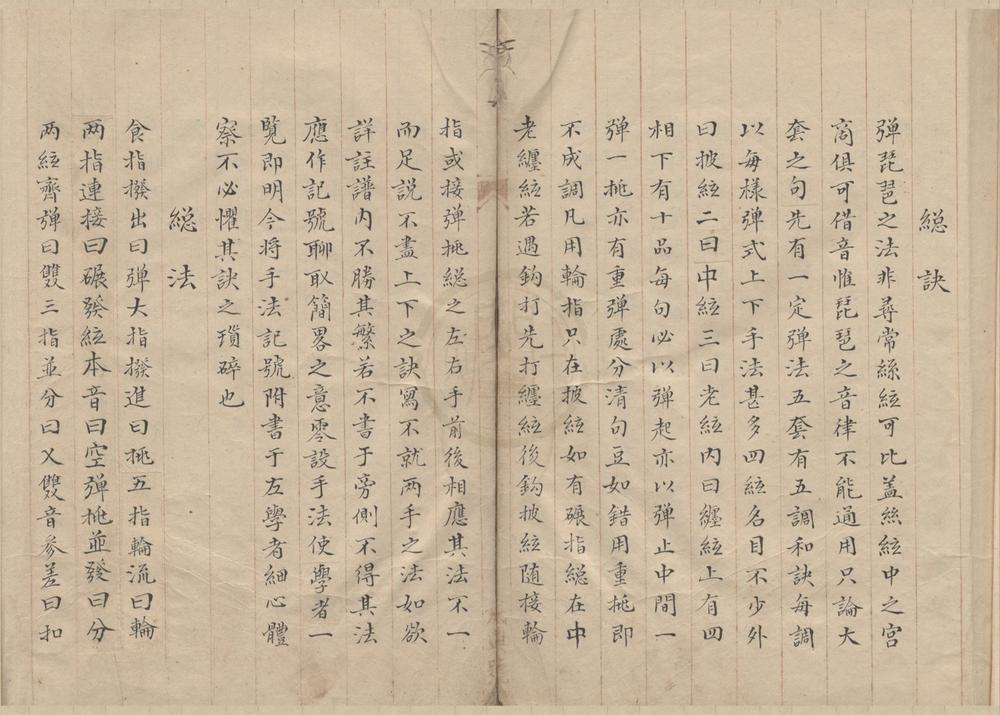 總訣
弹琵琶之法非尋常絲絃可比盖絲絃中之宮
商俱可借音惟琵琶之音律不能通用只論大
套之句先有一定弹法五套有五調和訣每調
以每樣弹式上下手法甚多四絃名目不少外
曰披絃二曰中絃三曰老絃内曰纏絃上有四
相下有十品每句必以弹起亦以弹止中間一
弹一挑亦有重弹處分清句豆如錯用重挑即
不成調凡用輪指只在披絃如有碾指縂在中
老纏絃若遇鈎打先打纏絃後鈎披絃随接輪
指或接弹挑縂之左右手前後相應其法不一
而足説不盡上下之訣寫不就两手之法如欲
詳註譜内不勝其繁若不書于旁側不得其法
應作記號聊取簡畧之意零設手法使學者一
覧即明今将手法記號附書于左學者細心體
察不必懼其訣之瑣碎也
縂法
食指撥出曰弹大指撥進曰挑五指輪流曰輪
两指連接曰碾發絃本音曰空弹挑並發曰分
两絃齊弹曰雙三指並分曰㐅雙音参差曰扣